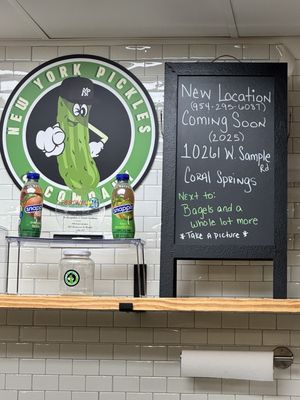 NEW YORK PICKLES
COMPANY
NY
Snapple
Snapple
New Location
(954-295-6087)
Coming Soon
(2025)
10261 W. Sample Rd
Coral Springs
Next to:
Bagels and a
whole lot more
*Take a Picture*